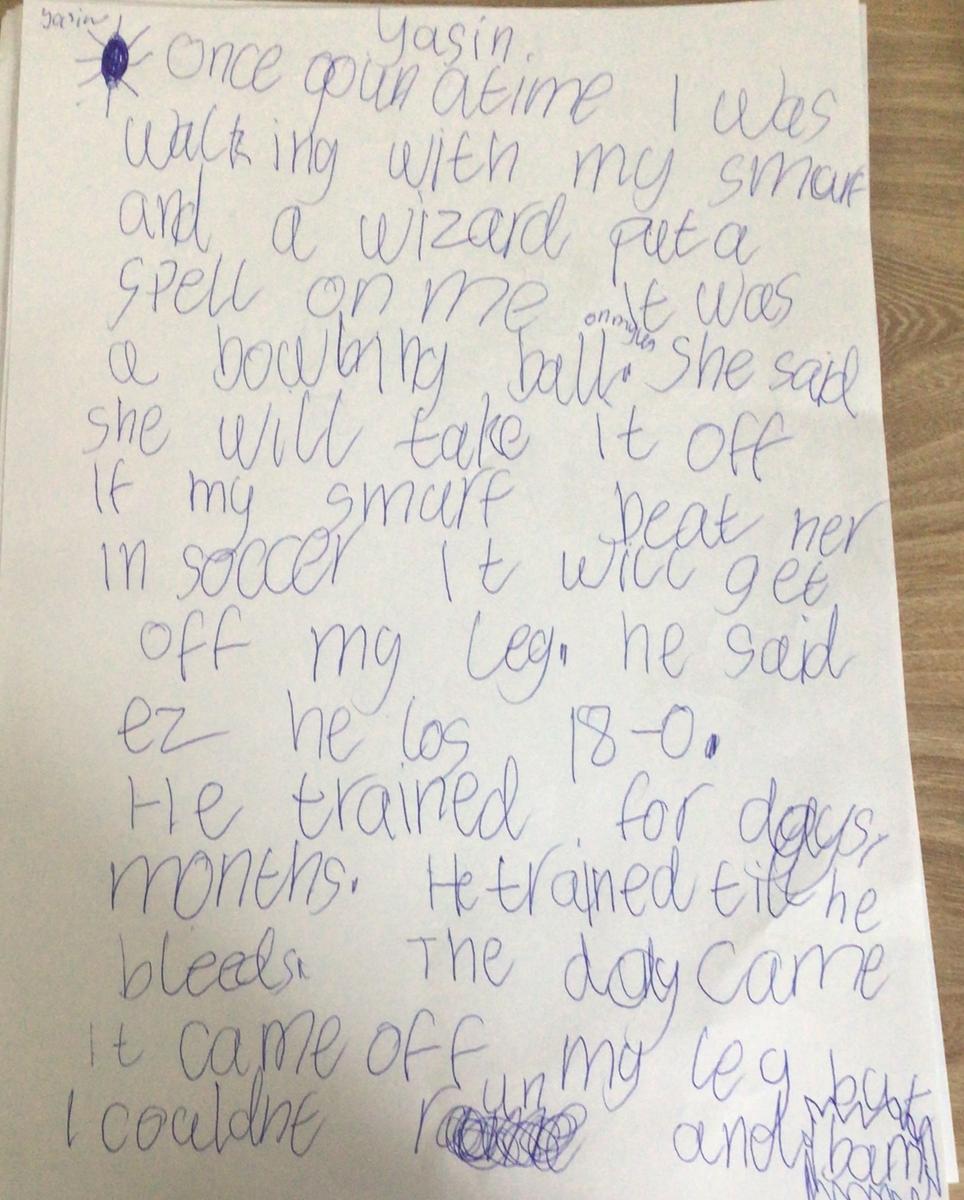 yasin
yasin.
Once opun atime I was
walking with my smurf
and a wizard put a
spell on me it was
a bowling ball. on my leg She said
she will take it off
If my smurf beat her
in soccer It will get
off my leg. he said
ez he los 18-0.
He trained for days,
months. He trained till he
bleeds. The day came
it came off my leg but
I couldnt run and bam